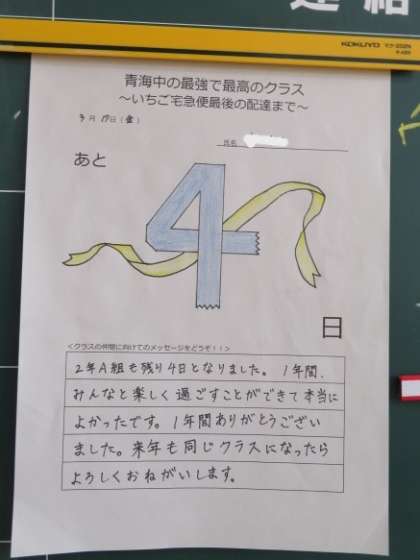 連絡
KOKUYO
青海中の最強で最高のクラス
～いちご宅急便最後の配達まで～
3月19日(金)
氏名
あと
4
日
<クラスの仲間に向けてのメッセージをどうぞ！！>
2年A組も残り4日となりました。1年間、
みんなと楽しく過ごすことができて本当に
よかったです。1年間ありがとうござい
ました。来年も同じクラスになったら
よろしくおねがいします。